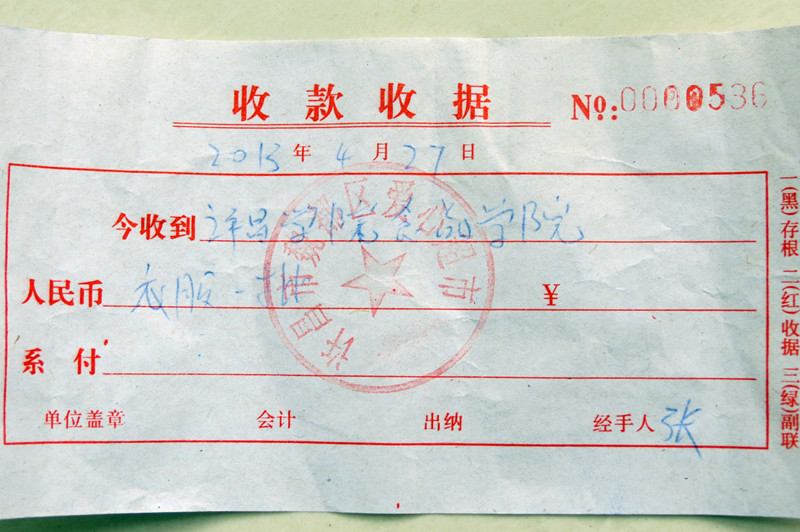 收款收据 №:0000536
2013年4月27日
今收到 许昌学院食品学院
人民币 衣服一批 ¥
系付
单位盖章 会计 出纳 经手人 张
一(黑)存根 二(红)收据 三(绿)副联